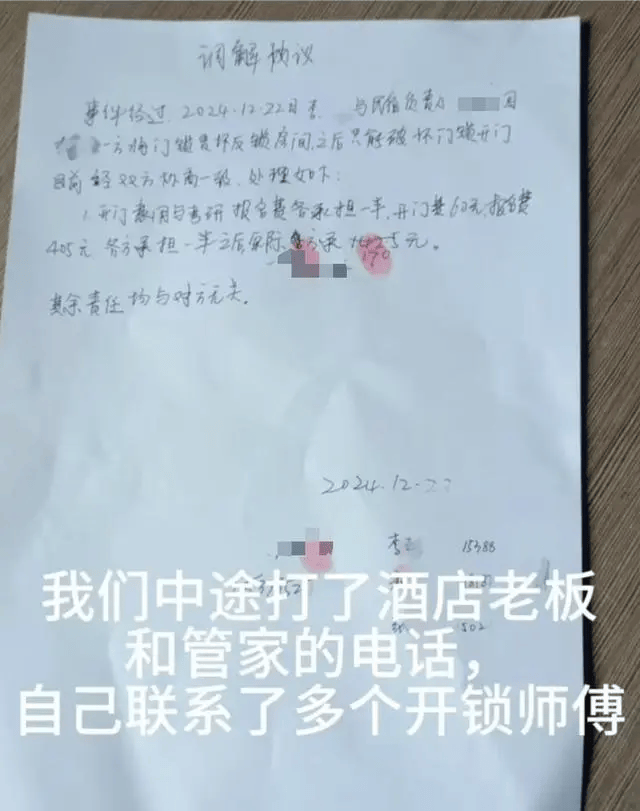 调解协议
事件经过：2024.12.22日 与民宿负责人 因
一方将门锁损坏反锁房间，之后只能破坏门锁开门
目前经双方协商一致，处理如下：
1.开门费用与考研报名费各承担一半，开门费60元，报名费
405元 各方承担一半之后实际 方承 元。
170
其余责任均与对方无关。
2024.12.
李 15388
502
我们中途打了酒店老板
和管家的电话，
自己联系了多个开锁师傅